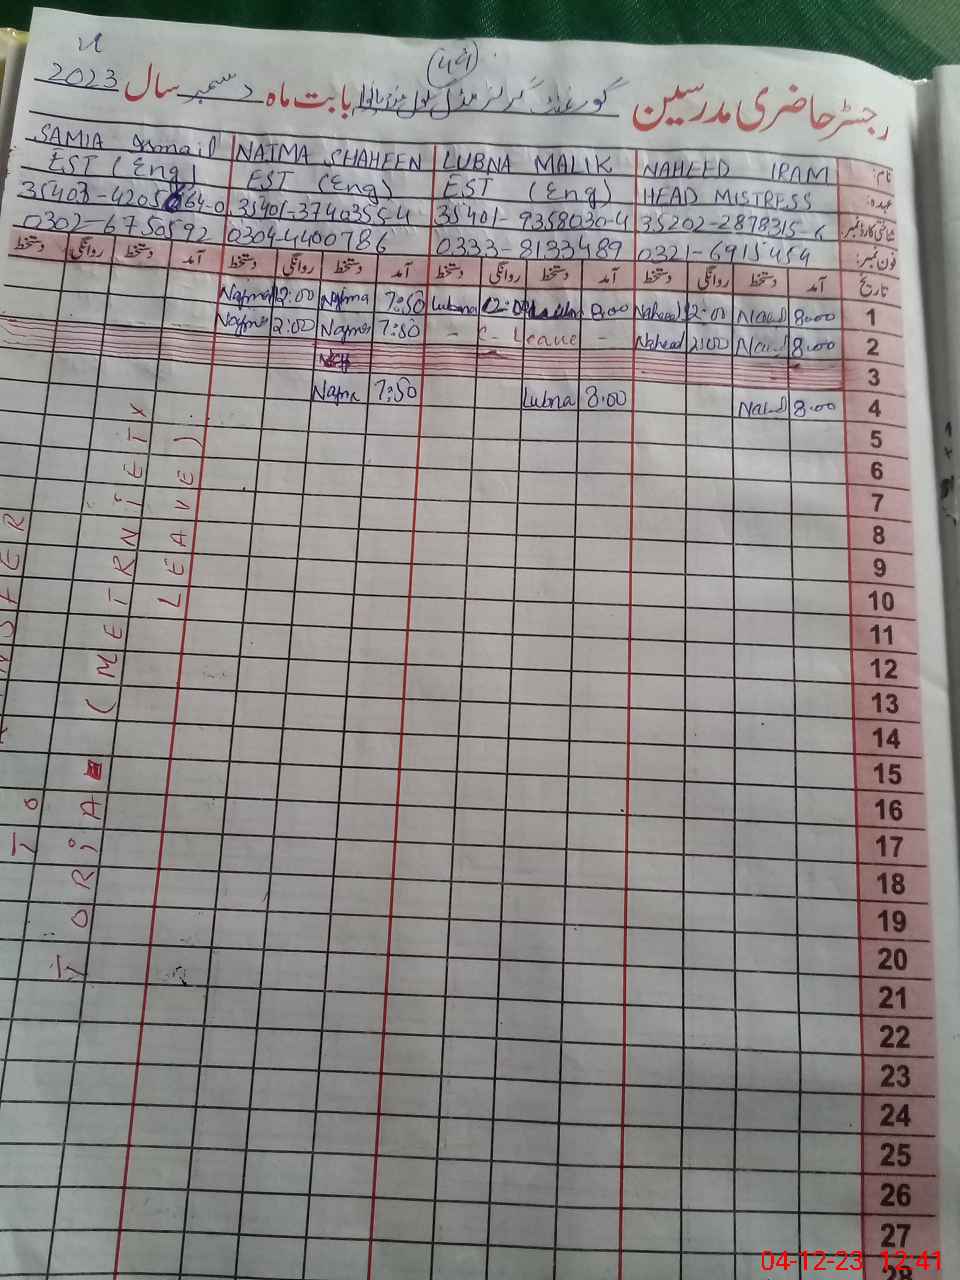 (49)
رجسٹر حاضری مدرسین بابت ماہ دسمبر سال 2023
نام: NAHEED IRAM LUBNA MALIK NAJMA SHAHEEN SAMIA Ismail
عہدہ: HEAD MISTRESS EST (Eng) EST (Eng) EST (Eng)
شناختی کارڈ نمبر: 35202-2878315-6 35401-9358030-4 35401-3740355-4
فون نمبر: 0321-6915454 0333-8133489 0304-4400786 0302-6750592
تاریخ آمد دستخط روانگی دستخط آمد دستخط روانگی دستخط آمد دستخط روانگی دستخط آمد دستخط روانگی دستخط
1 8:00 Naheed 12:00 Naheed 8:00 Lubna 12:00 Lubna 7:50 Najma 12:00 Najma
2 8:00 2:00 Naheed - C-Leave - 7:50 Najma 2:00 Najma
3
4 8:00 8:00 Lubna 7:50 Najma
5
6
7
8
9
10
11
12
13
14
15
16
17
18
19
20
21
22
23
24
25
26
27
28
(METRNIETY
LEAVE)
TO
04-12-23 12:41